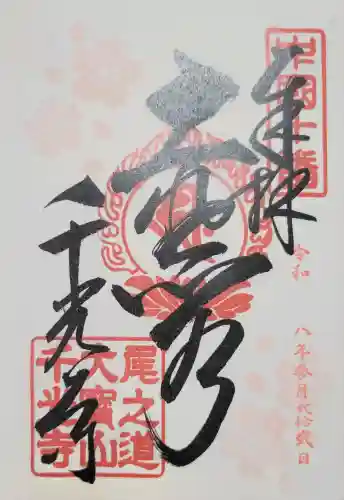 中国十番
奉拝
令和
八年参月弐拾弐日
千光寺
尾之道
大寳山
千光寺